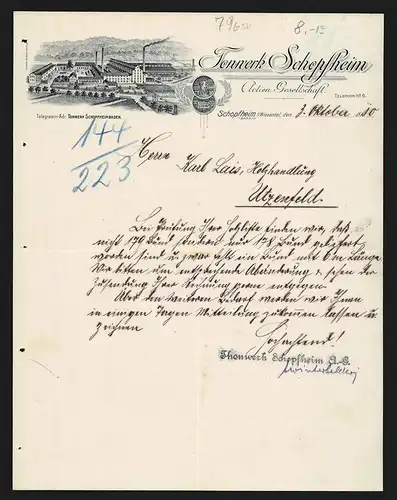 796
8.-15
Tonwerk Schopfheim
Actien-Gesellschaft.
Telephon No 6.
Telegramm-Adr: Tonwerk Schopfheimbaden.
Schopfheim (Wiesental), den 3. Oktober
144
223
Herrn
Karl Lais, Holzhandlung
Utzenfeld.
Bei Prüfung Ihrer Holzliste finden wir, daß
nicht 179 Bund sondern nur 178 Bund geliefert
worden sind u. zwar fehlt ein Bund mit 6 m Länge
Wir bitten um entsprechende Abänderung & sehen der
Zusendung Ihrer Rechnung gerne entgegen.
Über den weiteren Bedarf werden wir Ihnen
in einigen Tagen Mitteilung zukommen lassen u.
zeichnen
Hochachtend!
Thonwerk Schopfheim A.-G.